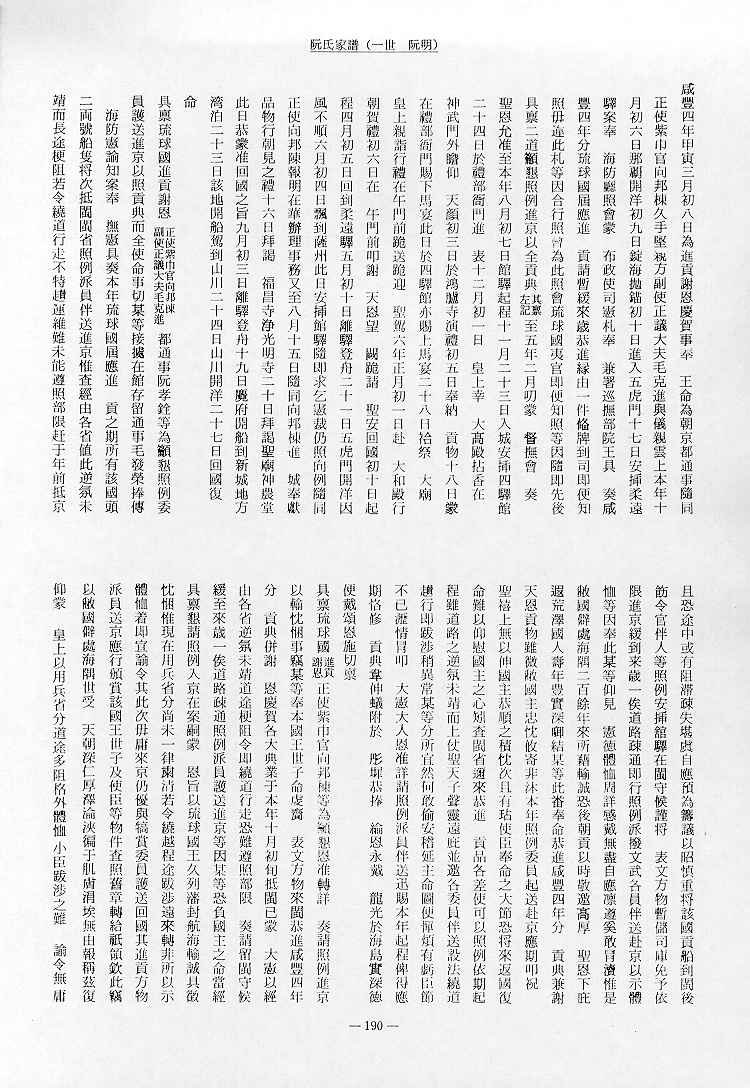 阮氏家譜（一世　阮明）
咸豐四年甲寅三月初八日為進貢謝恩慶賀事奉　王命為朝京都通事隨同
正使紫巾官向邦棟久手堅親方副使正議大夫毛克進與儀親雲上本年十
月初六日那覇開洋初九日碇海拋錨初十日進入五虎門十七日安挿柔遠
驛案奉　海防廳照會蒙　布政使司憲札奉　兼署巡撫部院王具　奏咸
豐四年分琉球國届應進　貢請暫緩來歲恭進縁由一件備牌到司即便知
照毋違此札等因合行照會為此照會琉球國夷官即便知照等因隨即先後
具稟二道籲懇照例進京以全貢典其稟左記至五年二月叨蒙　督撫會　奏
聖恩允准至本年八月初七日館驛起程十一月二十三日入城安挿四驛館
二十四日於禮部衙門進　表十二月初一日　皇上幸　大高殿拈香在
神武門外瞻仰　天顔初三日於鴻臚寺演禮初五日奉納　貢物十八日蒙
在禮部衙門賜下馬宴此日於四驛館亦賜上馬宴二十八日祫祭　大廟
皇上親詣行禮在午門前跪送跪迎　聖駕六年正月初一日赴　大和殿行
朝賀禮初六日在　午門前叩謝　天恩望　闕跪請　聖安回國初十日起
程四月初五日回到柔遠驛五月初十日離驛登舟二十一日五虎門開洋因
風不順六月初四日飄到薩州此日安挿館驛隨即求乞憲裁仍照向例隨同
正使向邦棟報明在華辦理事務又至八月十五日隨同向邦棟進　城奉獻
品物行朝見之禮十六日拜謁　福昌寺浄光明寺二十日拜謁聖廟神農堂
此日恭蒙准回國之旨九月初三日離驛登舟十九日麑府開船到新城地方
湾泊二十三日該地開船駕到山川二十四日山川開洋二十七日回國復
命
具稟琉球國進貢謝恩正使紫巾官向邦棟副使正議大夫毛克進　都通事阮孝銓等為籲懇照例委
員護送進京以照貢典而全使命事切某等接據在館存留通事毛發榮捧傳
海防憲諭知案奉　撫憲具奏本年琉球國届應進　貢之期所有該國頭
二両號船隻将次抵閩閩省照例派員伴送進京惟查經由各省值此逆氛未
靖而長途梗阻若令繞道行走不特趲運維難未能遵照部限赶于年前抵京
且恐途中或有阻滞疎失堪虞自應預為籌議以昭慎重将該國貢船到閩後
筋令官伴人等照例安挿舘驛在閩守候謹将　表文方物暫儲司庫免予依
限進京緩到來歲一俟道路疎通即行照例派撥文武各員伴送赴京以示體
恤等因奉此某等仰見　憲徳體恤周詳感戴無盡自應凜遵奚敢冒瀆惟是
敝國僻處海隅二百餘年來所藉輸誠恐後朝貢以時敬邀高厚　聖恩下庇
遐荒澤國人壽年豊實深卿結某等此番奉命恭進咸豐四年分　貢典兼謝
天恩貢物雖微敝國主忠忱攸寄非沐本年照例委員起送赴京應期叩祝
聖禧上無以伸國主恭順之積忱次且有玷使臣奉命之大節恐将來返國復
命難以仰慰國主之心矧查閩省邇來恭進　貢品各差使可以照例依期起
程雖道路之逆氛未靖而上使聖天子聲靈遠庇並邀各委員伴送設法繞道
趲行即跋渉稍異常某等分所宜然何敢偷安稽延主命圖使憚煩有虧臣節
不已瀝情冒叩　大憲大人恩准詳請照例派員伴送迅賜本年起程俾得應
期恪修　貢典韋伸蟻附於　彤墀恭捧　綸恩永戴　龍光於海島實深徳
便戴頌恩施切稟
具稟琉球國進貢謝恩正使紫巾官向邦棟等為籲懇恩准轉詳　奏請照例進京
以輸忱悃事竊某等奉本國王世子命虔齎　表文方物來閩恭進咸豐四年
分　貢典併謝　恩慶賀各大典業于本年十月初旬抵閩已蒙　大憲以經
由各省逆氛未靖道途梗阻令即繞道行走恐難遵照部限　奏請留閩守候
緩至來歲一俟道路疎通照例派員護送進京等因某等恐負國主之命當經
具稟懇請照例入京在案嗣蒙　恩旨以琉球國王久列藩封航海輸誠具徵
忱悃惟現在用兵省分尚未一律粛清若令繞越程途跋渉遠來轉非所以示
體恤着即宣諭令其此次毋庸來京仍優與犒賞委員護送回國其進貢方物
派員送京應行頒賞該國王世子及使臣等物件查照舊章轉給祗領欽此竊
以敝國僻處海隅世受　天朝深仁厚澤淪浹徧于肌膚涓埃無由報稱茲復
仰蒙　皇上以用兵省分道途多阻格外體恤　小臣跋渉之難　諭令無庸
— 190 —